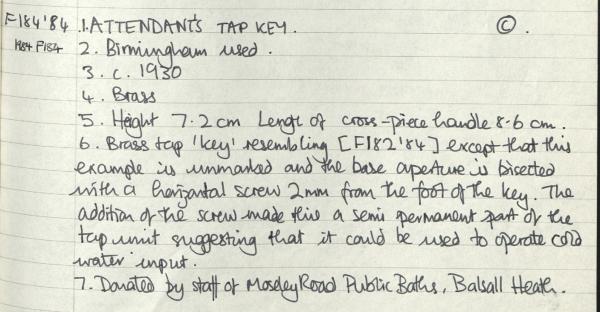 F184'84 1. ATTENDANT'S TAP KEY. ©.
1984 F184 2. Birmingham used.
3. c. 1930
4. Brass
5. Height 7.2cm Lengt of cross-piece handle 8.6 cm.
6. Brass tap 'key' resembling [F182'84] except that this
example is unmarked and the base aperture is bisected
with a horizontal screw 2mm from the foot of the key. The
addition of the screw made this a semi permanent part of the
tap unit suggesting that it could be used to operate cold
water input.
7. Donated by staff of Moseley Road Public Baths, Balsall Heath.